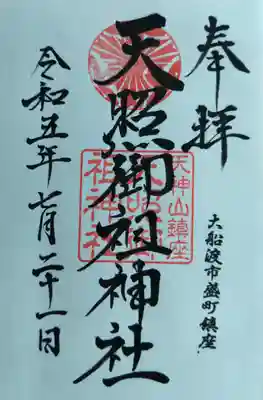 奉拝
大船渡市盛町鎮座
天神山鎮座
天照御祖神社
令和五年七月二十一日